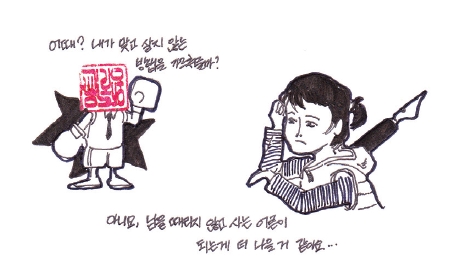 어때? 내가 맞고 살지 않는
방법을 가르쳐줄까?
아니요, 남을 때리지 않고 사는 어른이
되는게 더 나을거 같아요...